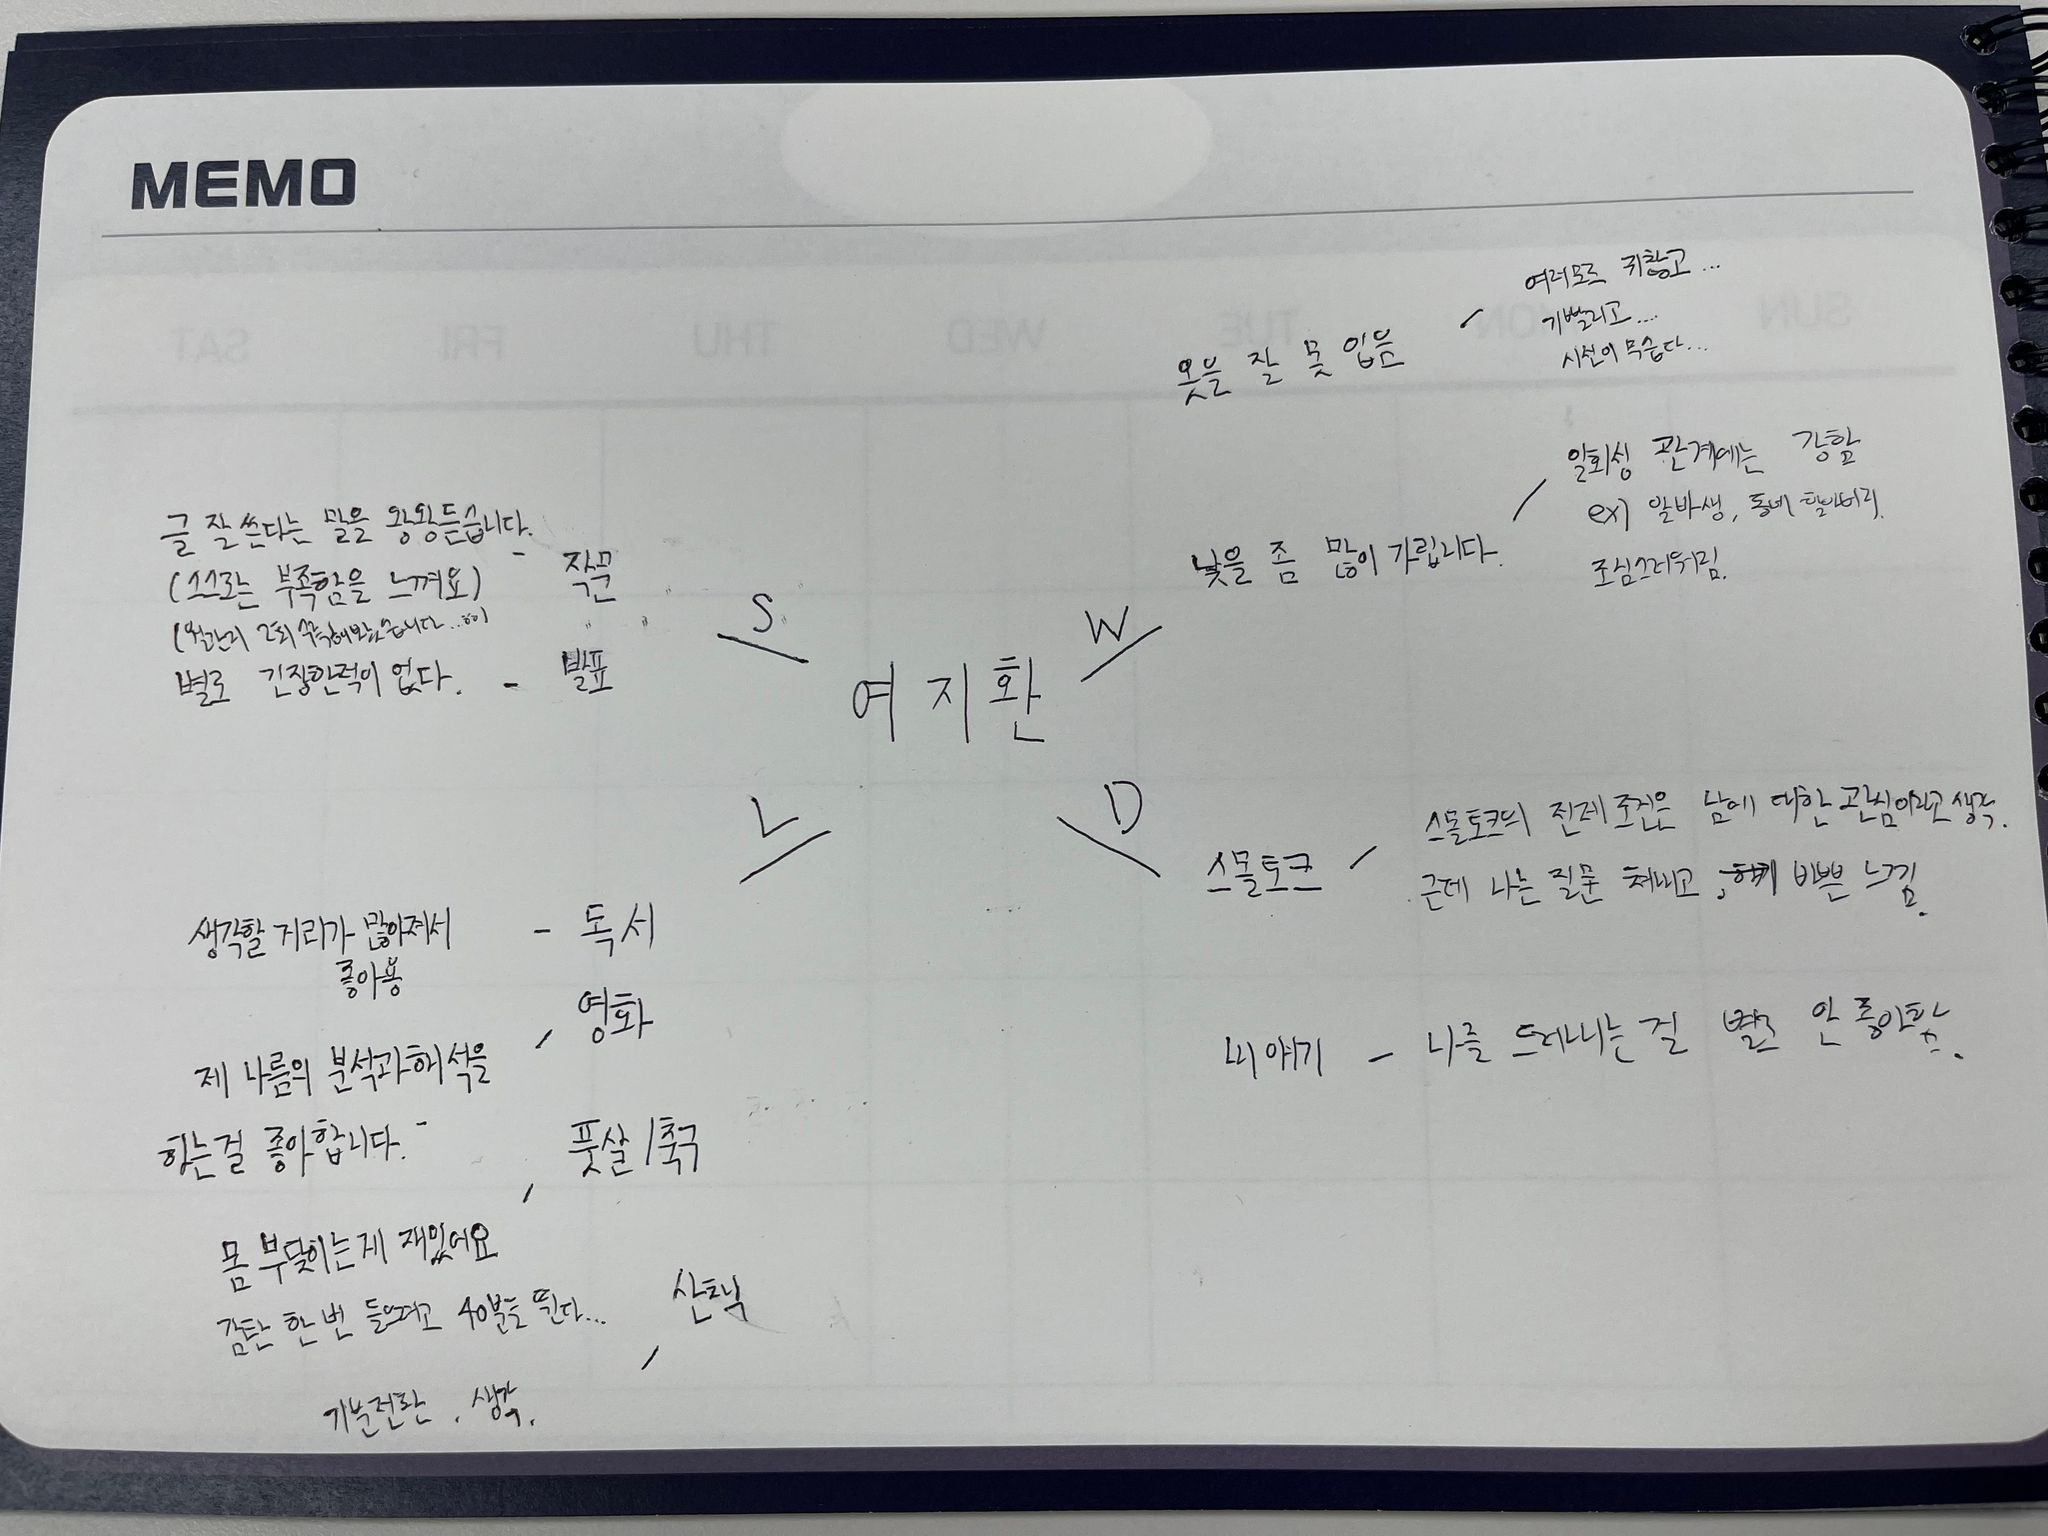 MEMO
SUN MON TUE WED THU FRI SAT
여지환
S
글 잘 쓴다는 말을 왕왕 듣습니다. - 작문
(스스로는 부족함을 느껴요)
2회 수록해봤습니다...
별로 긴장한적이 없다. - 발표
W
옷을 잘 못 입음
여러모로 귀찮고...
기빨리고...
시선이 무습다...
낯을 좀 많이 가립니다.
일회성 관계에는 강함
ex) 알바생, 동네 할아버지.
조심스러워짐.
L
생각할 거리가 많아져서 - 독서
좋아용
영화
제 나름의 분석과 해석을
하는걸 좋아합니다.
풋살/축구
몸 부딪히는게 재밌어요
감탄 한 번 들으려고 40분을 뛴다...
산책
기분전환, 생각.
D
스몰토크
스몰토크의 전제 조건은 남에 대한 관심이라고 생각.
근데 나는 질문 쳐내고, 바쁜 느낌.
내 얘기 - 나를 드러내는 걸 별로 안 좋아함.